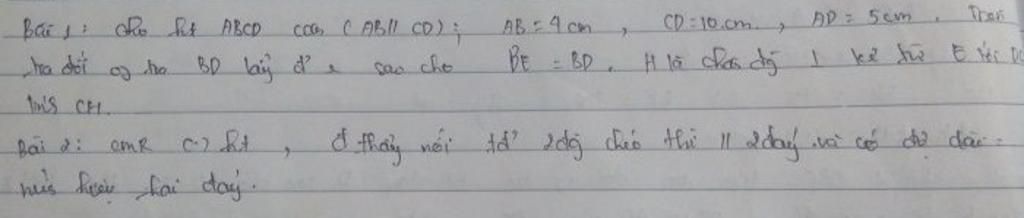 Bài 1: cho ht ABCD cân (AB// CD); AB = 4cm, CD=10cm, AD = 5cm. Trên
tia đối của tia BD lấy đ' E sao cho BE = BD. H là chân đg ⊥ kẻ từ E tới DC
Tính CH.
Bài 2: CMR (-) ht, đ thẳng nối tđ' 2 đg chéo thì // 2 đáy và có độ dài =
nửa hiệu hai đáy.